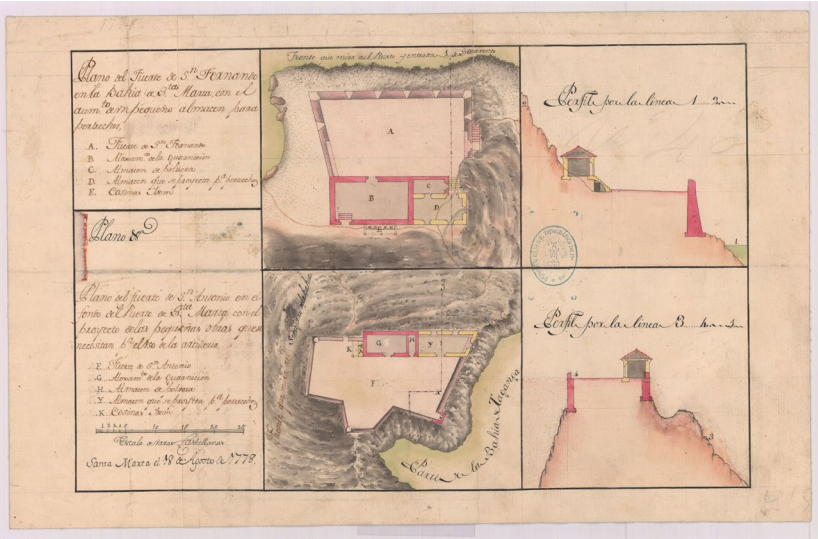 Plano del Fuerte de Sn. Fernando
en la Bahia de Sta. Maria con el
aumto. de un pequeño almacen para
pertrechos,
A. Fuerte de Sn. Fernando
B. Aloxamto. de la Guarnicion
C. Almacen de polvora
D. Almacen que se proyecta pa. pertrechos
E. Cosinas
Plano 8º
Plano del fuerte de Sn. Antonio en el
del Puerto de Sta. Marta con el
proyecto de las pequeñas obras que se
necesitan pa. el de la artilleria.
F. Fuerte de Sn. Antonio
G. Aloxamto. de la Guarnicion
H. Almacen de polvora
Y. Almacen que se proyecta pa. pertrechos
K. Cosinas
Escala de varas Castellanas
Santa Marta el 18 de Agosto de 1778.
Frente que mira al Puerto y entrada
A
B
C
D
E
Perfil por la linea 1 2
F
G
H
Y
K
Parte de la Bahia de Taganca
Perfil por la linea 3 4